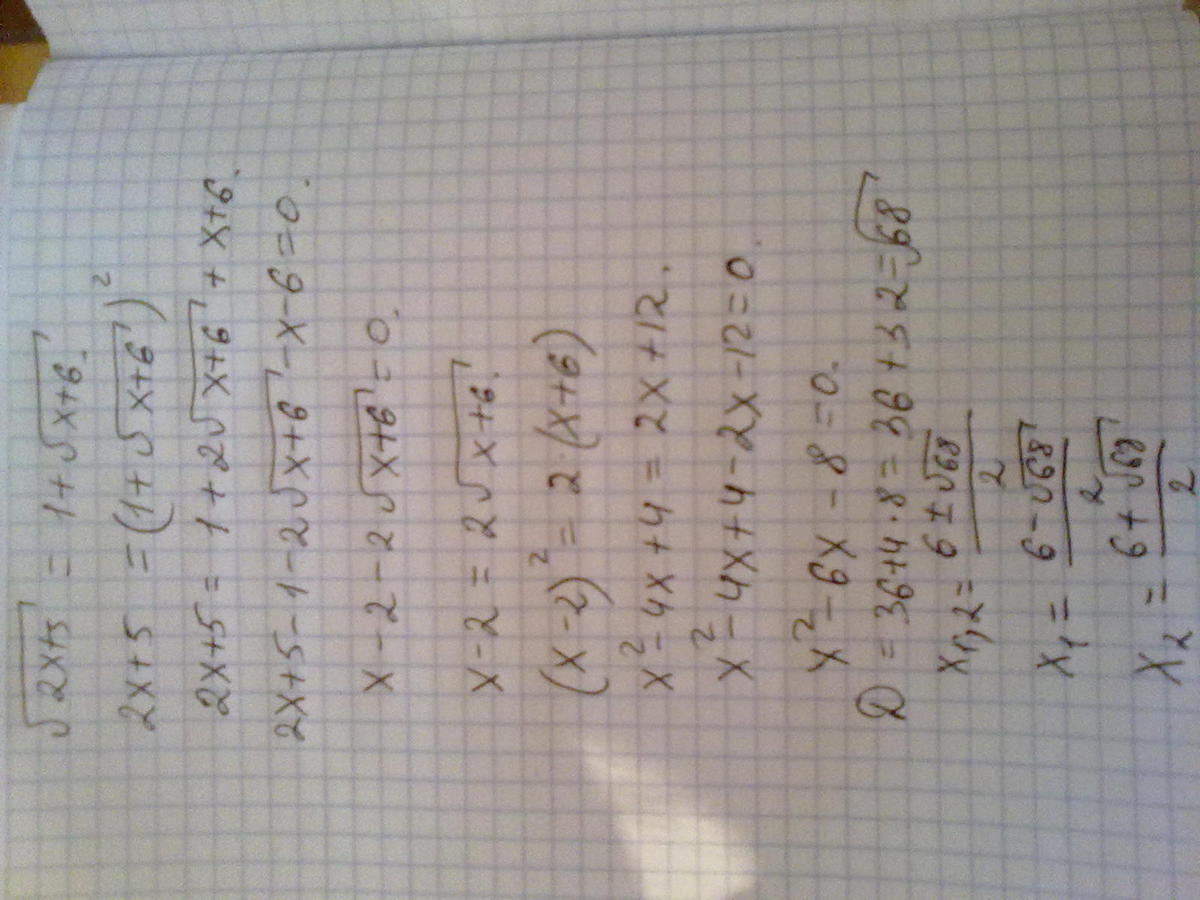 √2x+5 = 1+√x+6.
2x+5 = (1+√x+6)²
2x+5 = 1+2√x+6 + x+6.
2x+5-1-2√x+6-x-6=0.
x-2-2√x+6=0.
x-2=2√x+6.
(x-2)²=2·(x+6)
x²-4x+4=2x+12.
x²-4x+4-2x-12=0.
x²-6x-8=0.
D=36+4·8=36+32=√68
x1,2=6±√68/2
x1=6-√68/2
x2=6+√68/2